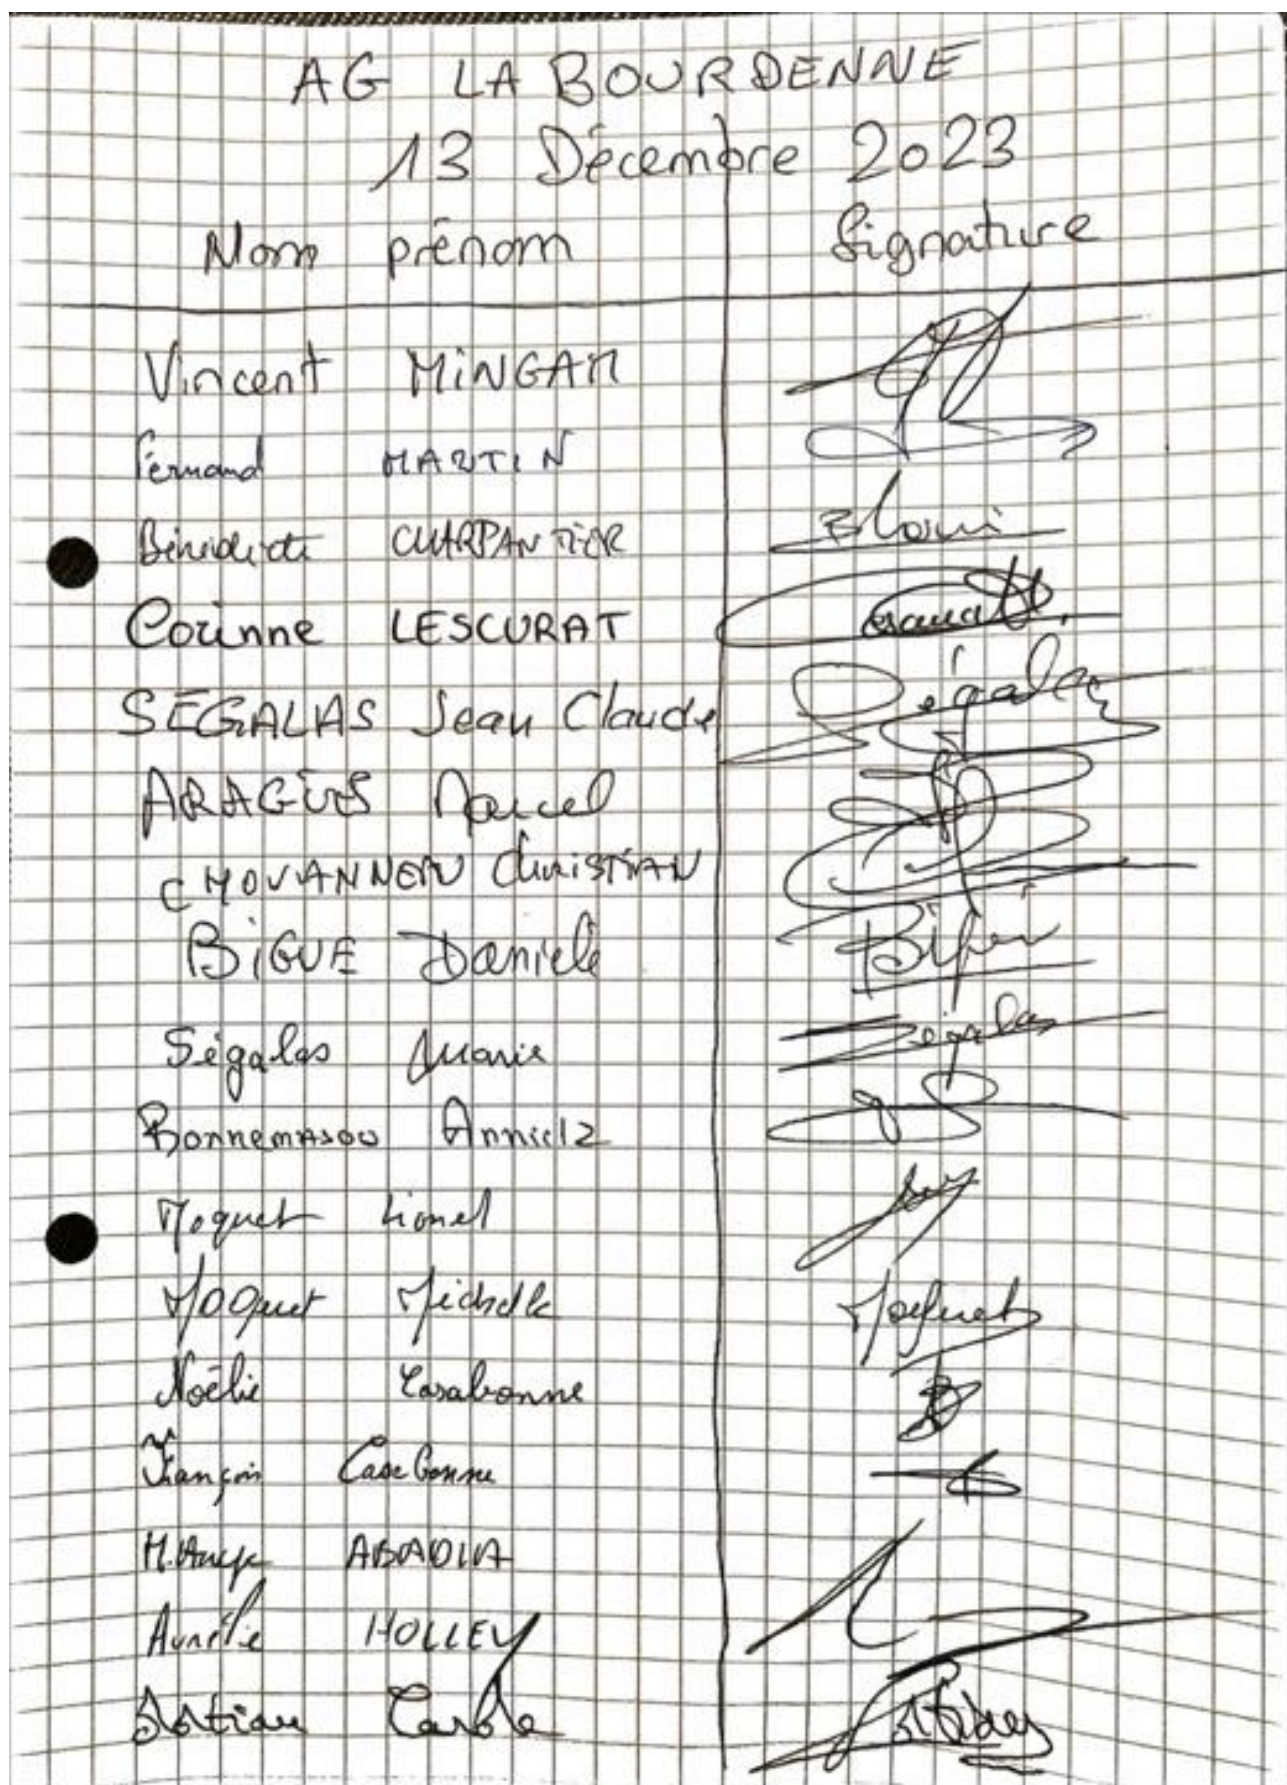 AG LA BOURDENNE
13 Décembre 2023
Nom prénom Signature
Vincent MINGAM
Fernand MARTIN
Bénédicte CHARPANTIER
Corinne LESCURAT
SÉGALAS Jean Claude Ségalas
ARAGÜES Marcel
CHOVANNEAU CHRISTIAN
BIGUÉ Daniele Bigué
Ségalas Marie Ségalas
Bonnemasou
Moquet Lionel
Moquet Michelle Moquet
Noëlie Casabonne
François Casabonne
ABADIA
Aurélie HOLLEY
Carole